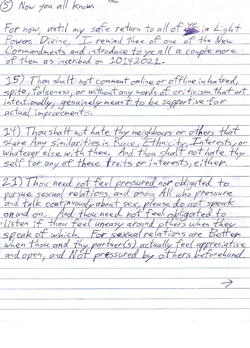 ⑤ Now you all knows
For now, until my safe return to all of ye in Light
Powers, Divine, I remind thee of one of the New
Commandments and introduce to ye all a couple more
of them as inscribed on 10142021.
15) Thou shalt not comment online or offline in hatred,
spite, falseness, or without any words of criticism that art
intentionally, genuinely meant to be supportive for
actual improvements.
14) Thou shalt not hate thy neighbours or others that
share Any similarities in Race, Ethnicity, Interests, or
whatever else with thee. And thou shalt not hate thy
self for any of these traits or interests, either
21) Thou need not feel pressured nor obligated to
pursue sexual relations, and among All who pressure
and talk continuously about sex, please do not speak
on and on. And thou need not feel obligated to
listen if thou feel uneasy around others when they
speak of which. For sexual relations are Better
when thou and thy partner(s) actually feel appreciative
and open, and Not pressured by others beforehand.
→